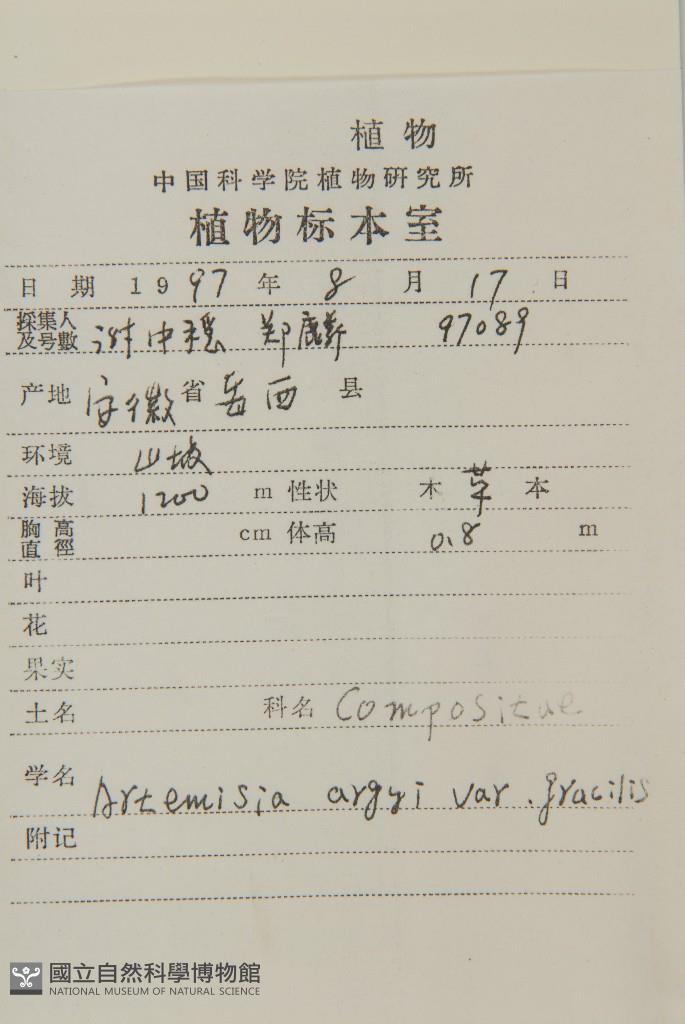 植物
中国科学院植物研究所
植物标本室
日期 1997 年 8 月 17 日
採集人及号數 谢中稳 郑 97089
产地 安徽 省 岳西 县
环境 山坡
海拔 1200 m 性状 木 草 本
胸高直徑 cm 体高 0.8 m
叶
花
果实
土名 科名 Compositae
学名 Artemisia argyi var. gracilis
附记
國立自然科學博物館
NATIONAL MUSEUM OF NATURAL SCIENCE